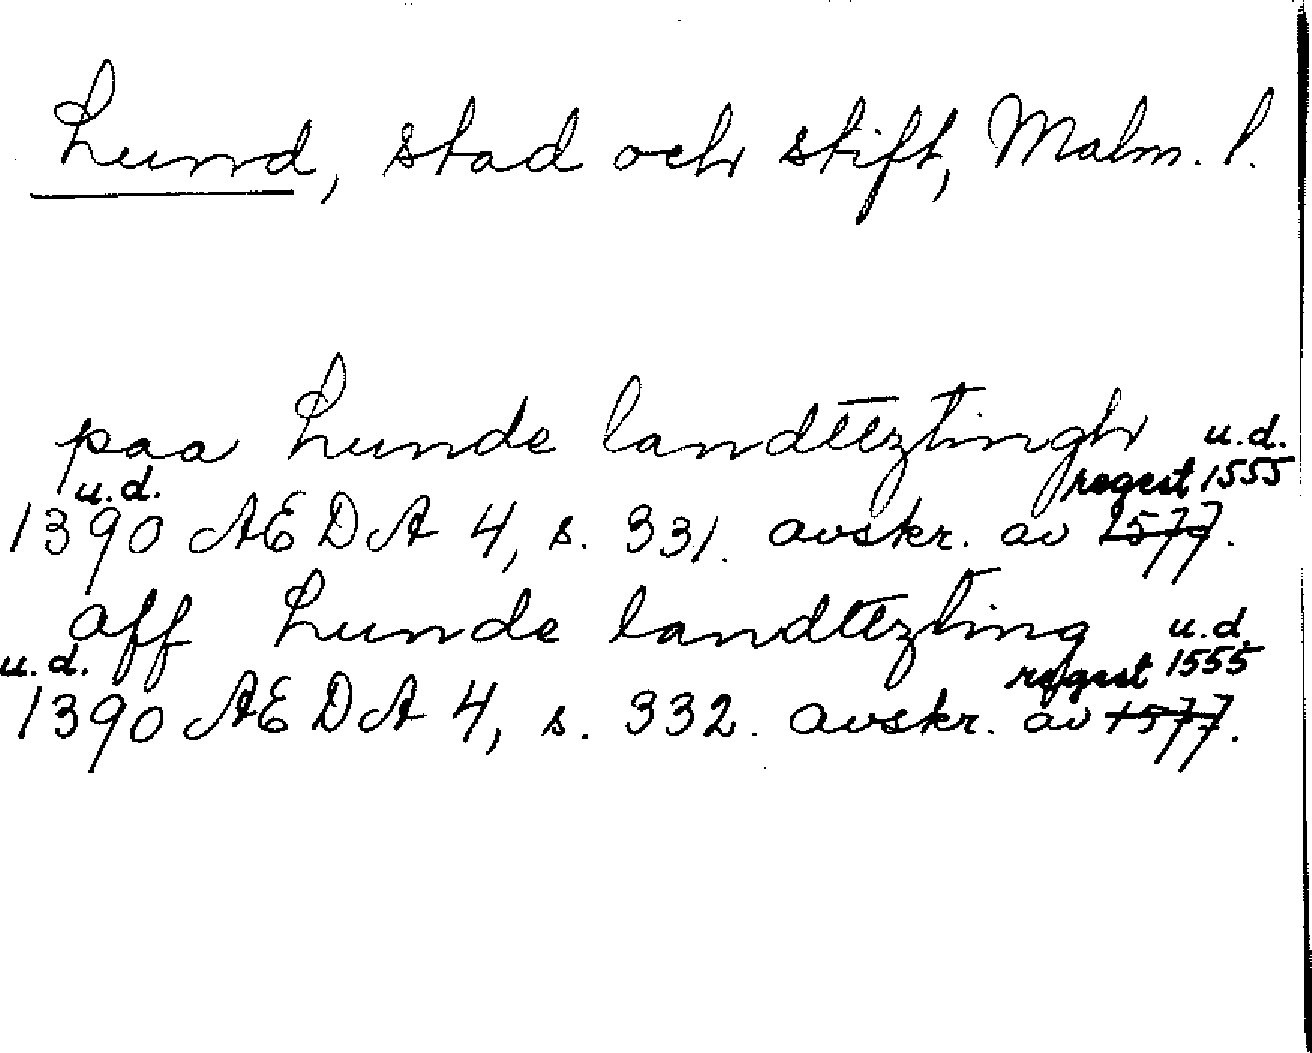 Lund, stad och stift, Malm. l.
paa Lunde landttztingh u.d.
u.d. regest 1555
1390 AEDA 4, s. 331. avskr. av 1577.
aff Lunde landttzting u.d.
u.d. regest 1555
1390 AEDA 4, s. 332. avskr. av 1577.